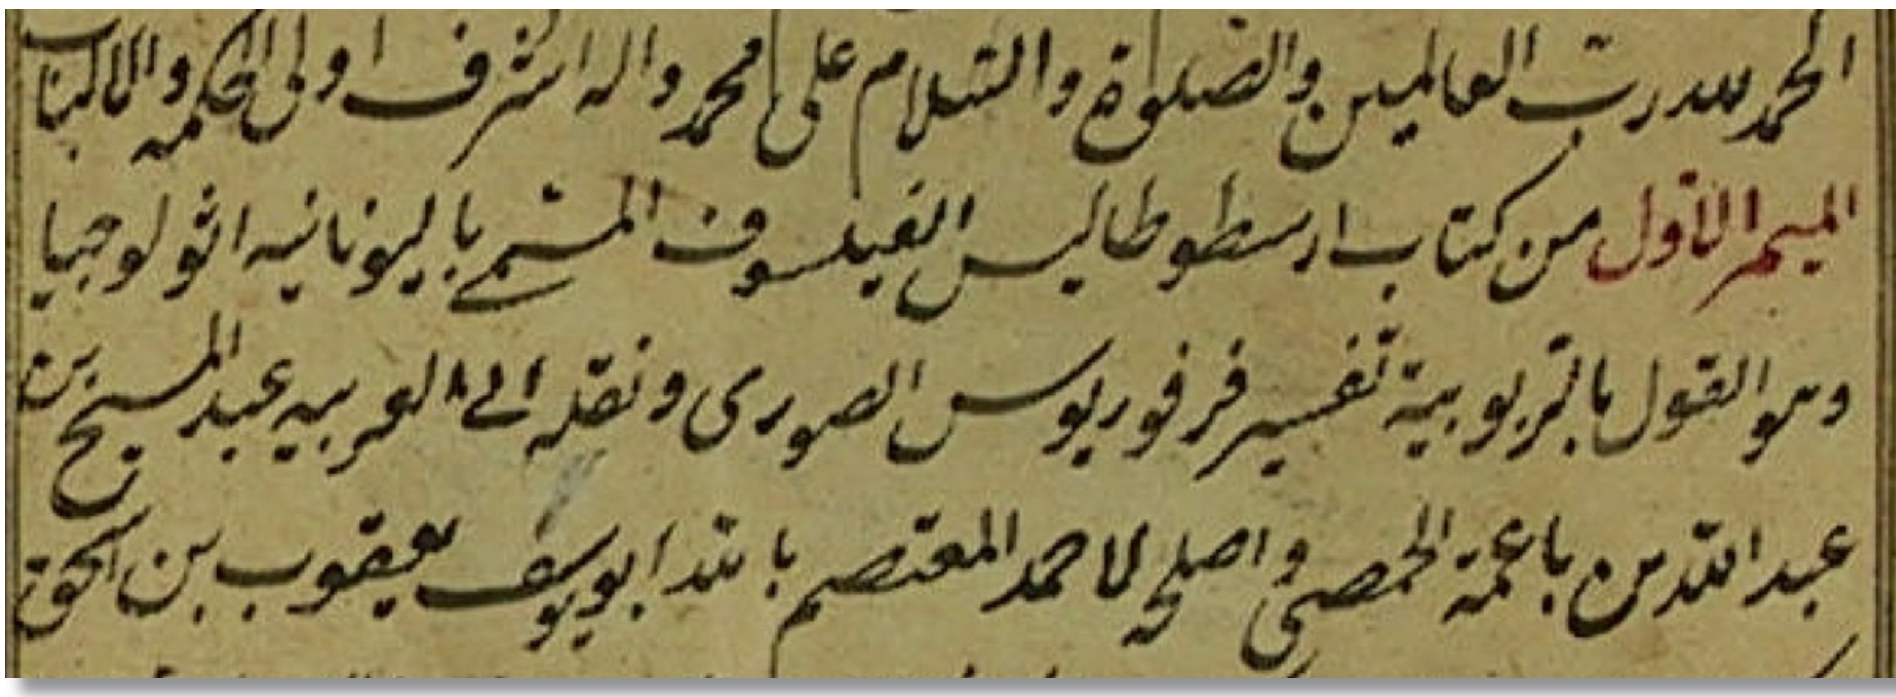 الحمد لله رب العالمين والصلوة والسلام على محمد واله اشرف اولى الحكمه والالباب
الميمر الاول من كتاب ارسطوطاليس الفيلسوف المسمى باليونانيه اثولوجيا
وهو القول بالربوبية تفسير فرفوريوس الصورى ونقله الى العربيه عبد المسيح بن
عبد الله بن باعمة الحمصى واصلحه لاحمد المعتصم بالله ابو يوسف يعقوب بن اسحق